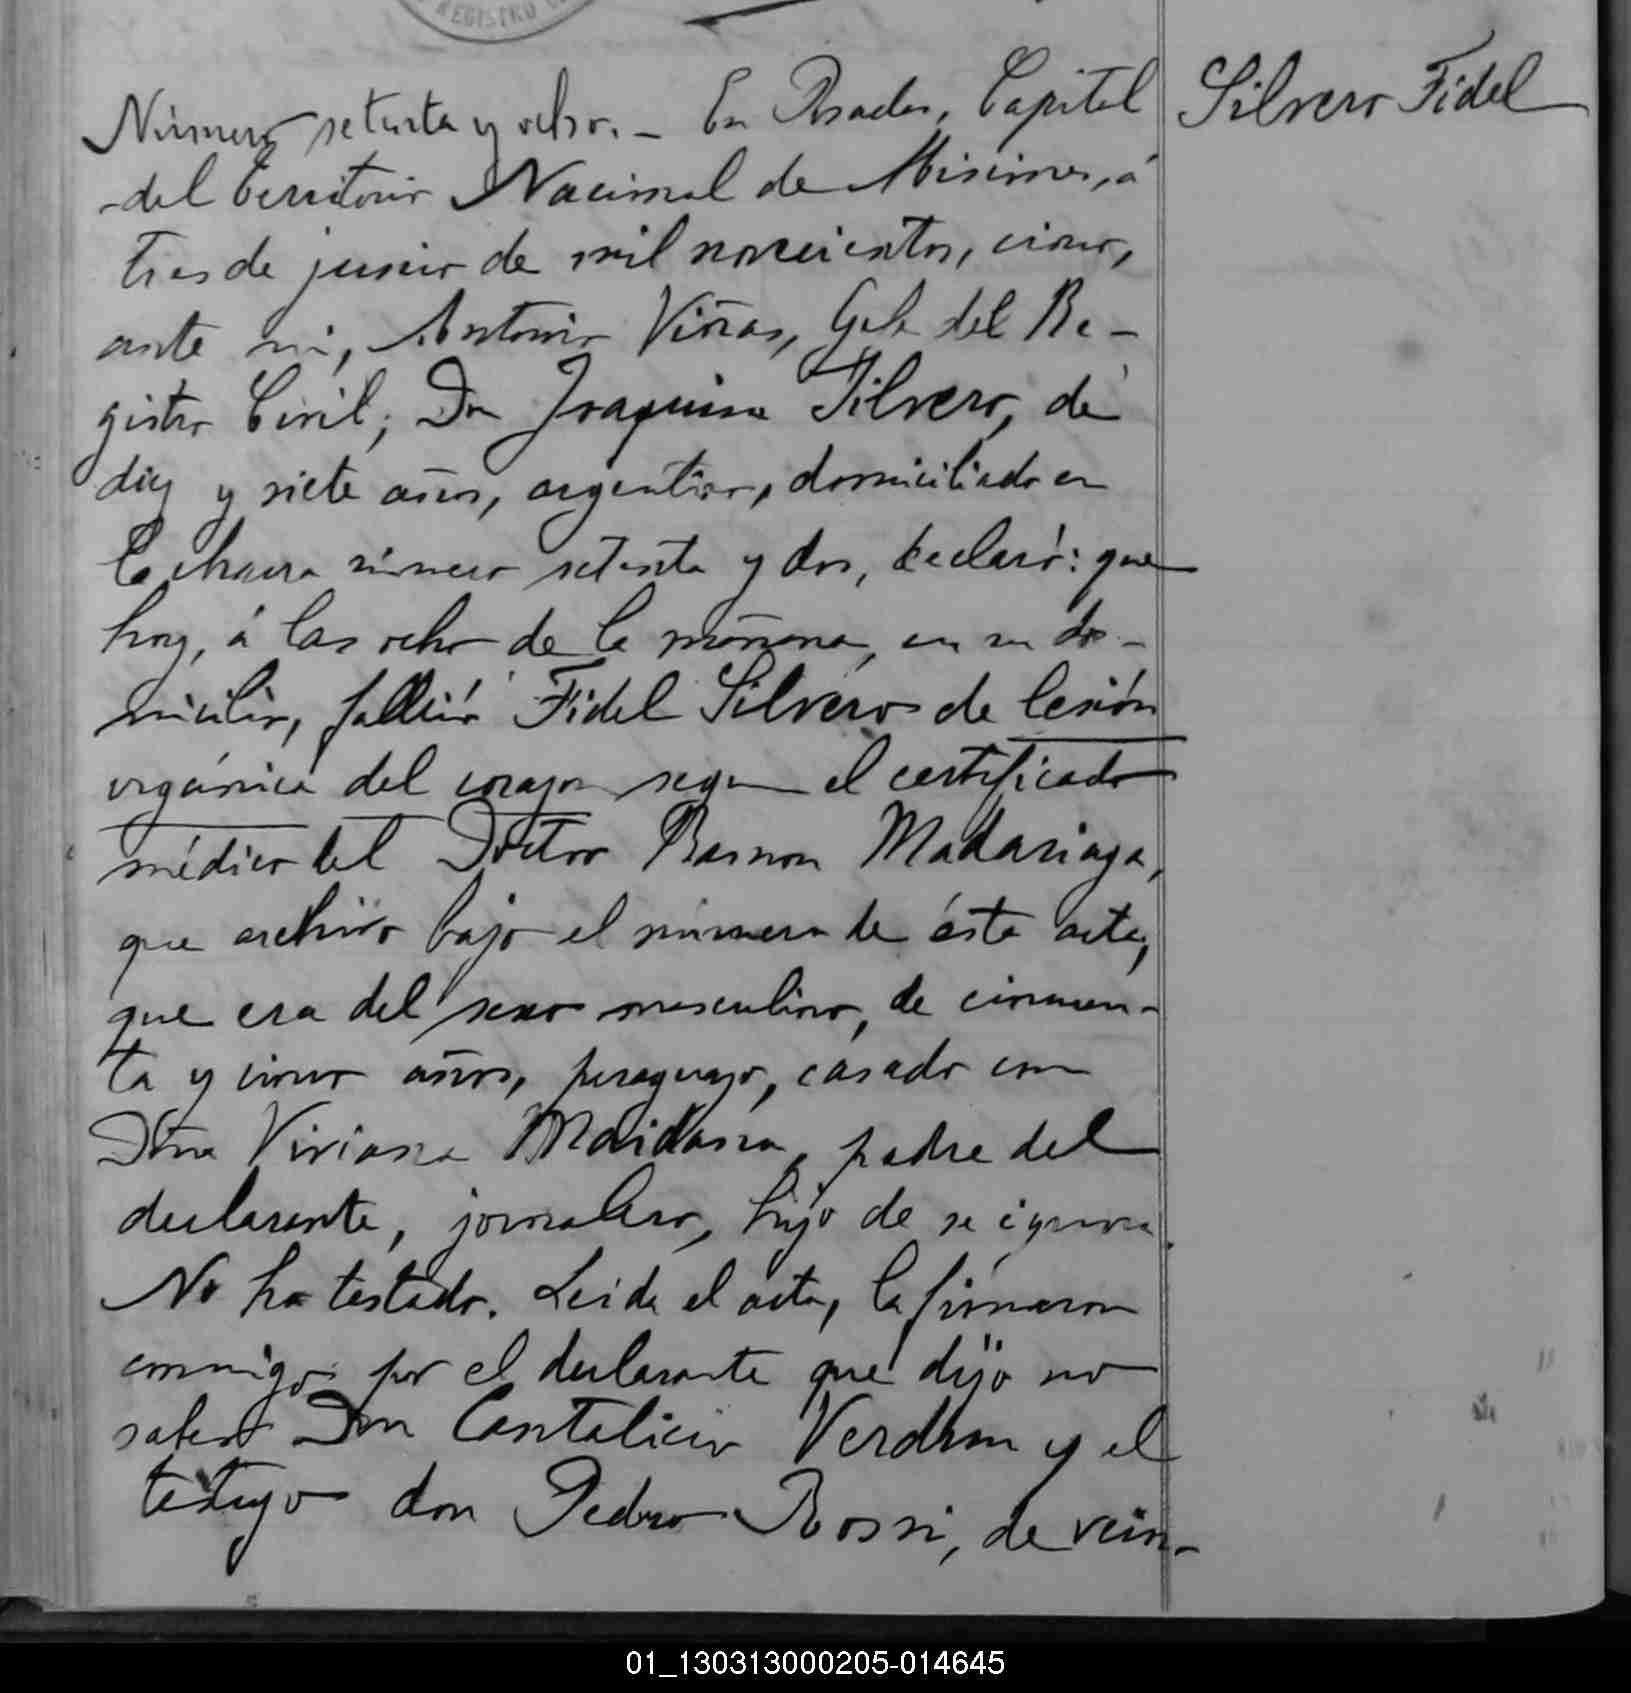 REGISTRO
Número setenta y ocho. - En Posadas, Capital
Silvero Fidel
del territorio Nacional de Misiones, á
tres de junio de mil novecientos, cinco,
ante mi, Antonio Viñas, Gefe del Re-
gistro Civil; Don Joaquin Silvero, de
diez y siete años, argentino, domiciliado en
la chacra número setenta y dos, declaró: que
hoy, á las ocho de la mañana, en su do-
micilio, falleció Fidel Silvero de lesión
orgánica del corazon segun el certificado
médico del Doctor Ramon Madariaga,
que archivo bajo el número de ésta acta,
que era del sexo masculino, de cincuen-
ta y cinco años, paraguayo, casado con
Doña Viviana Maidana, padre del
declarante, jornalero, hijo de se ignora.
No ha testado. Leida el acta, la firmaron
conmigo por el declarante que dijo no
saber Don Cantalicio Verdun y el
testigo don Pedro Rossi, de vein-
01_130313000205-014645